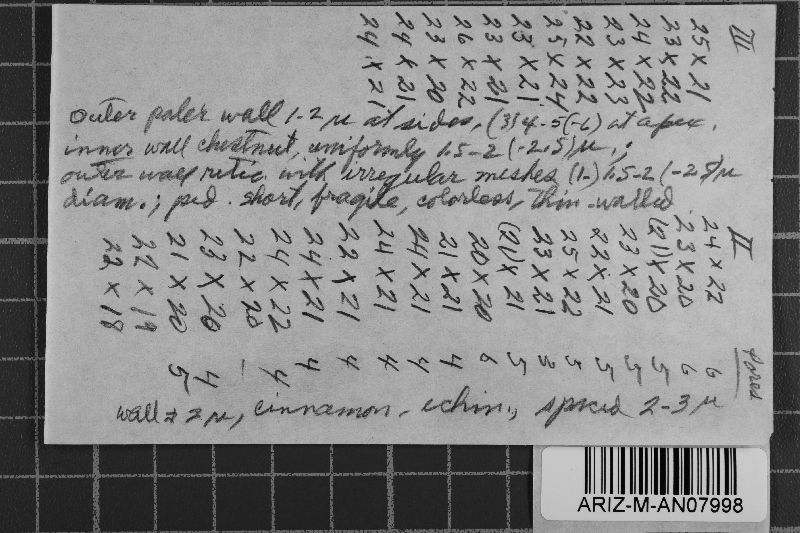 III
25 x 21
23 x 22
24 x 22
23 x 23
22 x 22
25 x 24
23 x 21
23 x 21
26 x 22
23 x 20
24 x 21
24 x 21
outer paler wall 1-2 µ at sides, (3) 4-5 (-6) at apex,
inner wall chestnut, uniformly 1.5-2 (-2.5) µ,;
outer wall retic. with irregular meshes (1-) 1.5-2 (-2.5) µ
diam.; ped. short, fragile, colorless, thin-walled
II
Pores
24 x 22 6
23 x 20 6
(21) x 20 5
23 x 20 5
22 x 21 5
25 x 22 5
23 x 21 3
(21) x 21 5
20 x 20 6
21 x 21 4
24 x 21 4
24 x 21 4
22 x 21 4
24 x 21 4
24 x 22 4
22 x 20 -
23 x 20 4
21 x 20 5
22 x 19
22 x 18
wall ± 2 µ, cinnamon, echin., spaced 2-3 µ
ARIZ-M-AN07998